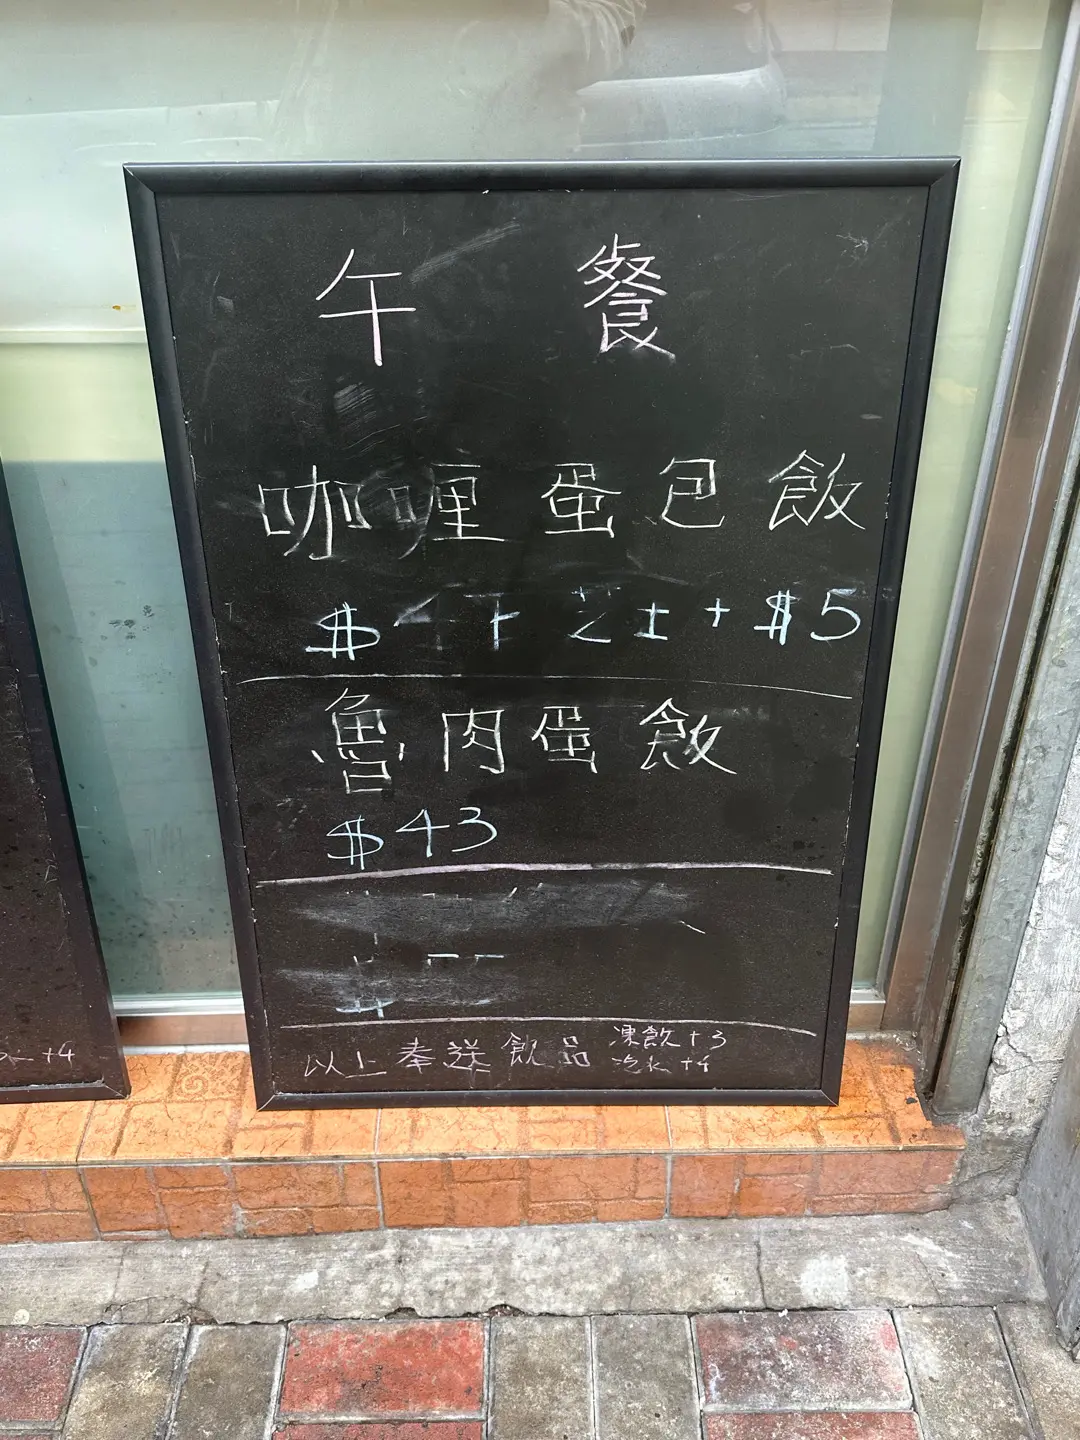 午 餐
咖喱蛋包飯
$4 芝士+$5
魯肉蛋飯
$43
以上奉送飲品 凍飲+3
汽水+4
+4